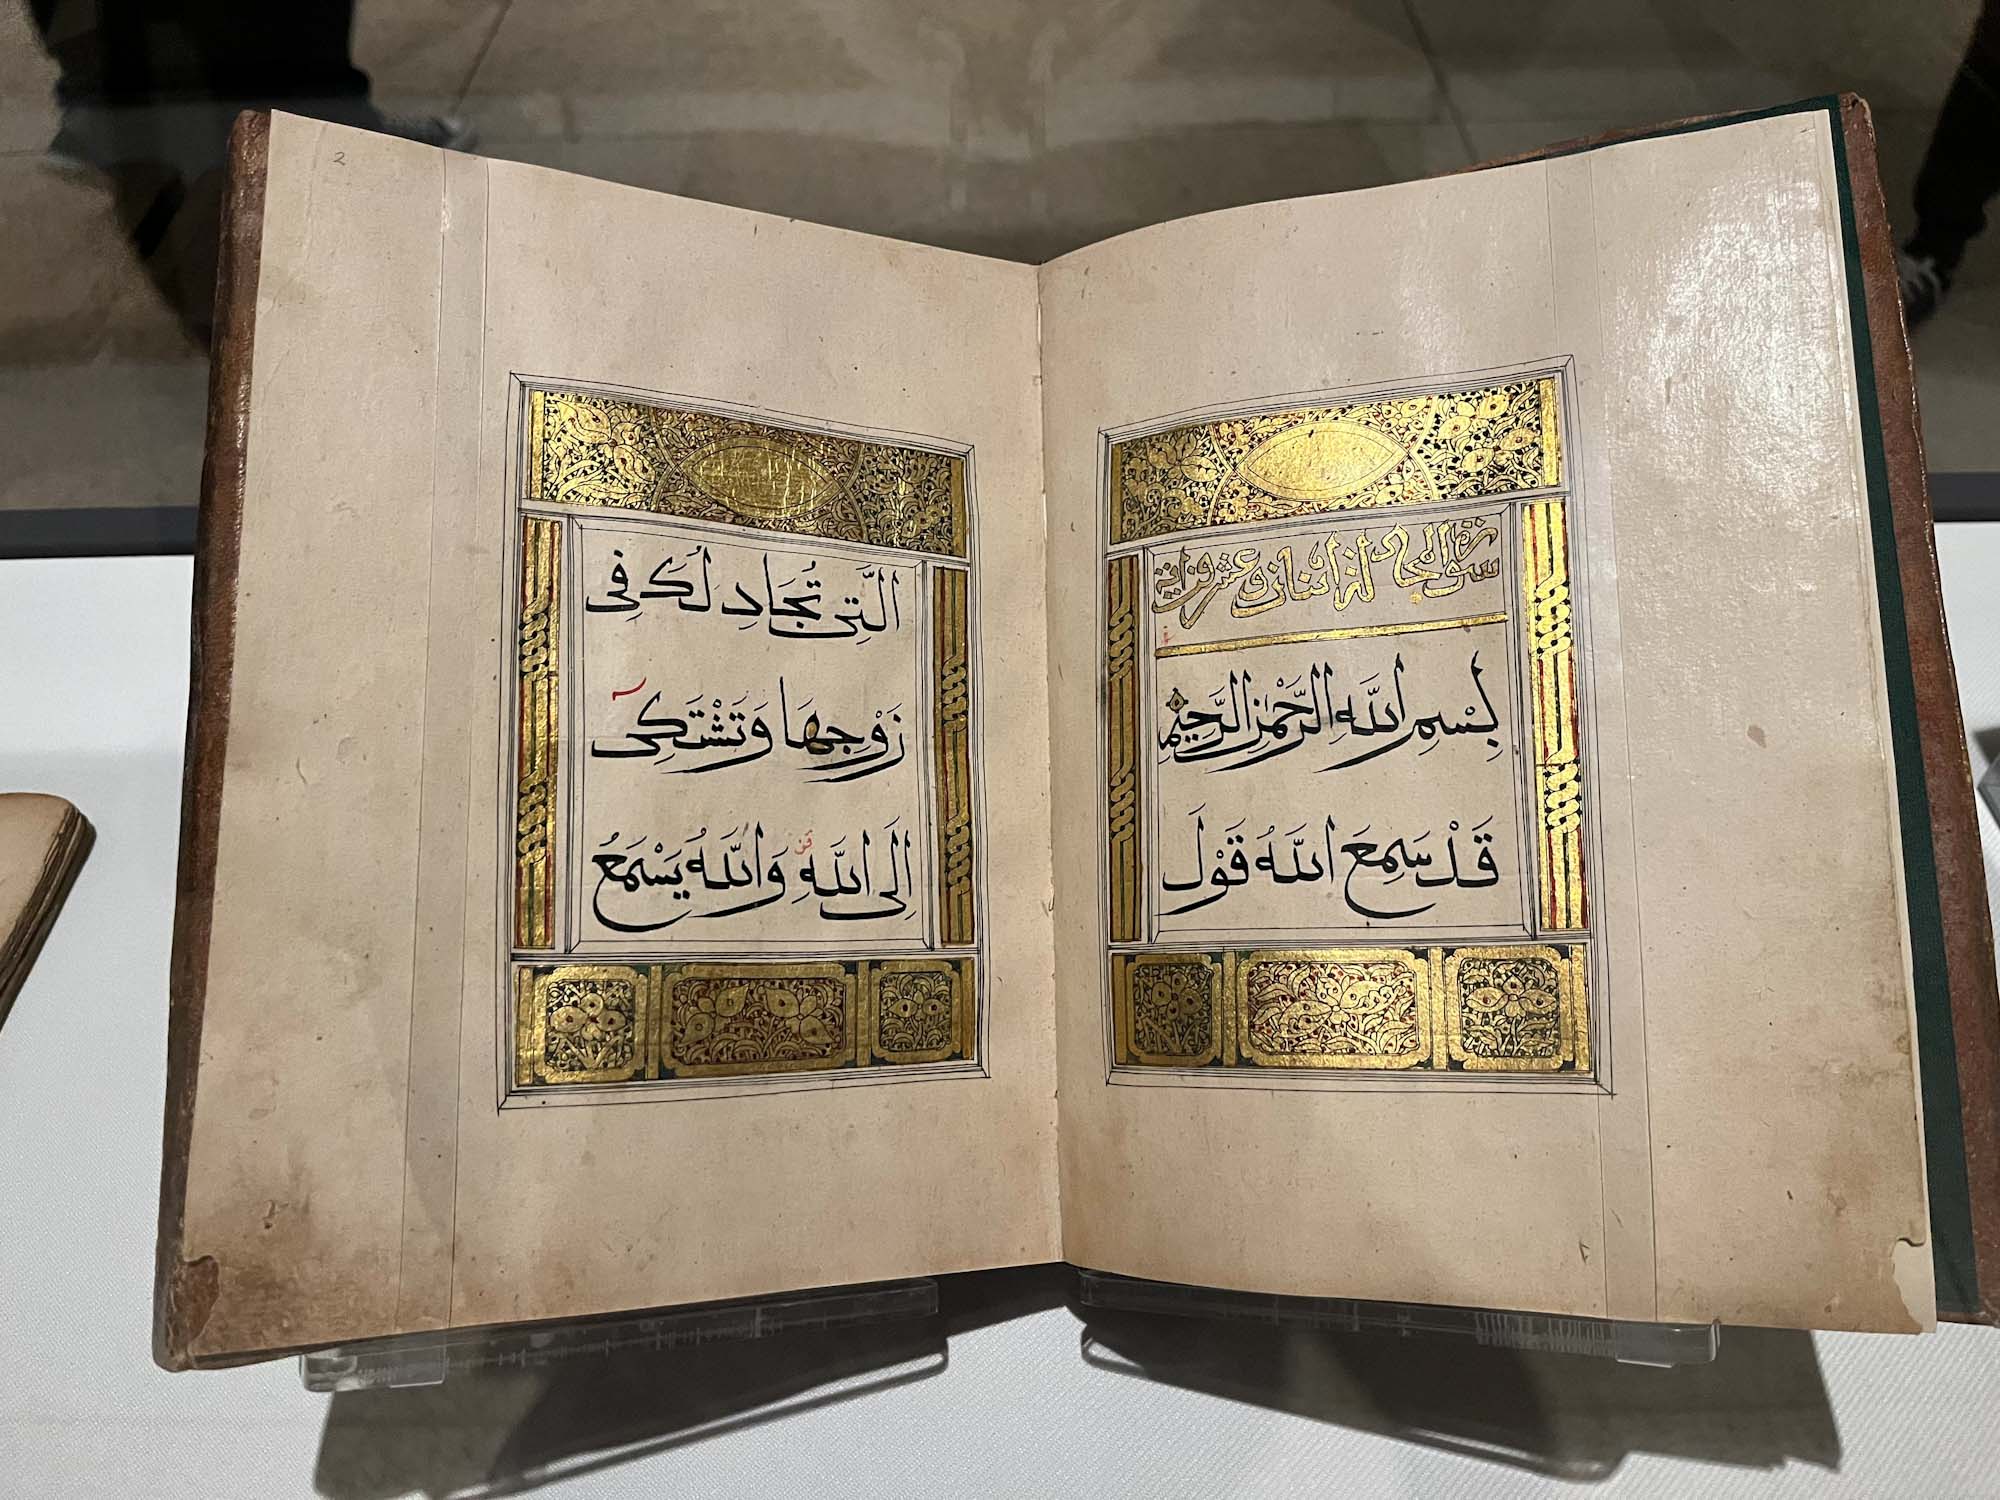 سورة المجادلة اثنان وعشرون اية
بِسْمِ اللَّهِ الرَّحْمٰنِ الرَّحِيْمِ
قَدْ سَمِعَ اللَّهُ قَوْلَ
2
الَّتِى تُجَادِلُكَ فِى
زَوْجِهَا وَتَشْتَكِى
اِلَى اللَّهِ وَاللَّهُ يَسْمَعُ